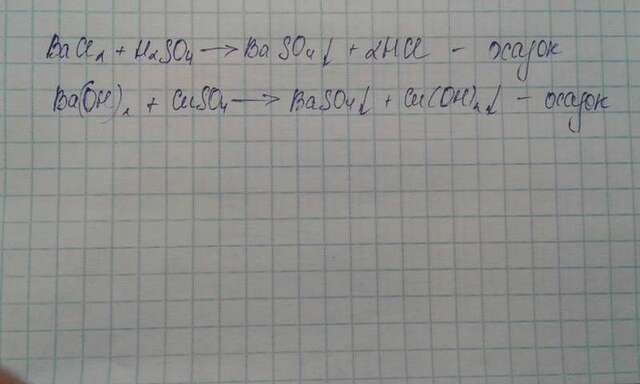 BaCl₂ + H₂SO₄ → BaSO₄↓ + 2HCl - осадок
Ba(OH)₂ + CuSO₄ → BaSO₄↓ + Cu(OH)₂↓ - осадок